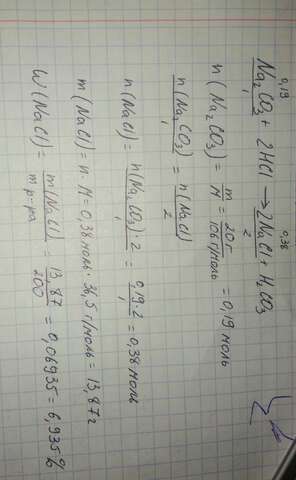 0,19 0,38
Na₂CO₃ + 2HCl → 2NaCl + H₂CO₃
1 2
n(Na₂CO₃) = m/M = 20г/106г/моль = 0,19 моль
n(Na₂CO₃)/1 = n(NaCl)/2
n(NaCl) = n(Na₂CO₃)·2/1 = 0,19·2/1 = 0,38 моль
m(NaCl) = n·M = 0,38 моль · 36,5 г/моль = 13,87 г
W(NaCl) = m(NaCl)/m р-ра = 13,87/200 = 0,06935 = 6,935%